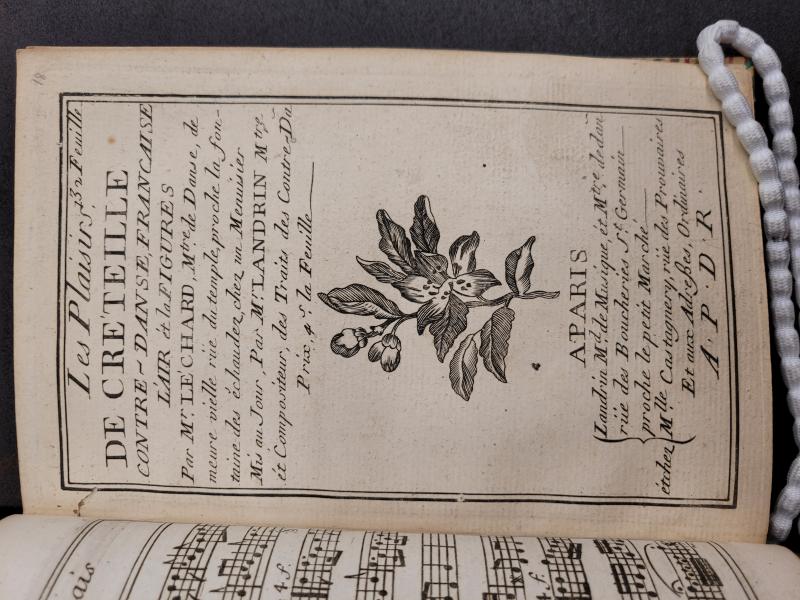 Les Plaisirs 32 Feuille
DE CRETEILLE
CONTRE-DANSE, FRANÇAISE
LAIR ét la FIGURES
Par Mr. LÉCHARD, Mtre. de Danse, de
meure vielle rüe du temple, proche la fon-
taine des échaudez, chez un Menuisier
Mis au Jour, Par Mr. LANDRIN Mtre.
ét Compositeur, des Traits des Contre-Du
Prix, 4 s. la Feuille
A PARIS
Landrin Md. de Musique, ét Mtre. de dan
rüe des Boucheries St. Germain
proche le petit Marché
étchez Mlle Castagnery, rüe des Prouvaires
Et aux Adresses, Ordinaires
A. P. D. R.
18
ais
4 f.
4 f.